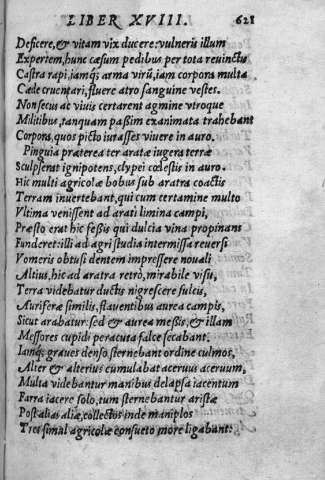 LIBER XVIII. 621
Deficere, & vitam vix ducere: vulneris illum
Expertem, hunc cæsum pedibus per tota reuinctis
Castra rapi, iamq; arma virũ, iam corpora multa
Cæde cruentari, fluere atro sanguine vestes.
Non secus ac viuis certarent agmine vtroque
Militibus, tanquam paßim exanimata trahebant
Corpora, quos picto iurasses viuere in auro.
Pinguia præterea ter aratæ iugera terræ
Sculpserat ignipotens, clypei cœlestis in auro.
Hic multi agricolæ bobus sub aratra coactis
Terram inuertebant, qui cum certamine multo
Vltima venissent ad arati limina campi,
Præsto erat hic feßis qui dulcia vina propinans
Funderet: illi ad agri studia intermissa reuersi
Vomeris obtusi dentem impressere nouali
Altius, hic ad aratra retrò, mirabile visu,
Terra videbatur ductis nigrescere sulcis,
Auriferæ similis, flauentibus aurea campis,
Sicut arabatur: sed & aurea meßis, & illam
Messores cupidi peracuta falce secabant.
Iamq; graues denso, sternebant ordine culmos,
Alter & alterius cumulabat aceruus aceruum,
Multa videbantur manibus delapsa iacentum
Farra iacere solo, tum sternebantur aristæ
Post alias aliæ, collectos inde maniplos
Tres simul agricolæ consueto more ligabant: